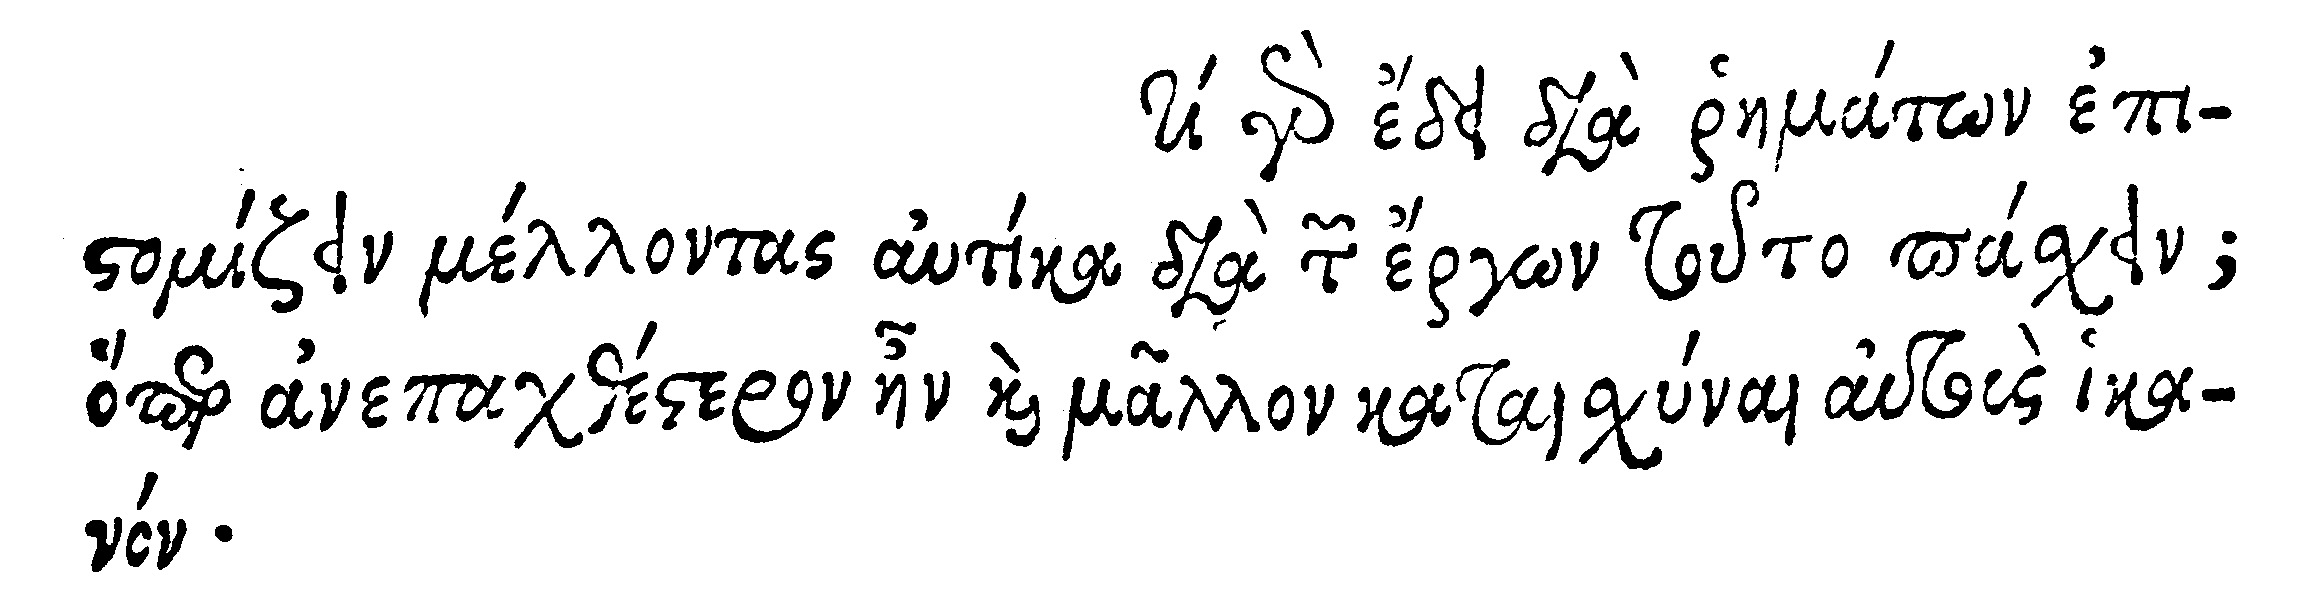 τί γὰρ ἔδει διὰ ῥημάτων ἐπι-
στομίζειν μέλλοντας αὐτίκα διὰ τῶν ἔργων τοῦτο πάσχειν;
ὅπερ ἀνεπαχθέστερον ἦν καὶ μᾶλλον καταισχύναι αὐτοὺς ἱκα-
νόν.